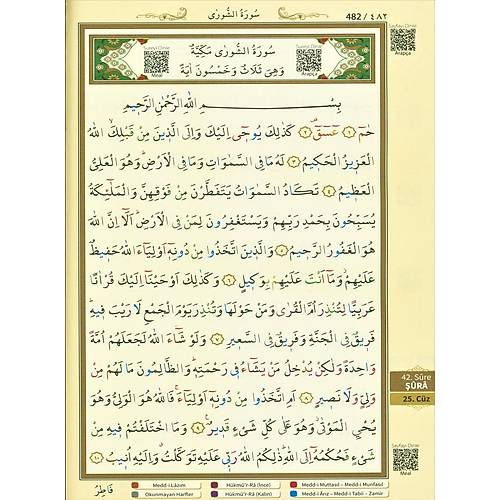 سُورَةُ الشُّورٰى
482 / ٤٨٢
Sureyi Dinle
Meal
سُورَةُ الشُّورٰى مَكِّيَّةٌ
وَهِيَ ثَلَاثٌ وَخَمْسُونَ اٰيَةً
Sureyi Dinle
Arapça
Sayfayı Dinle
Arapça
بِسْمِ اللّٰهِ الرَّحْمٰنِ الرَّحِيمِ
حٰمٓ ﴿١﴾ عٓسٓقٓ ﴿٢﴾ كَذٰلِكَ يُوحٰٓى اِلَيْكَ وَاِلَى الَّذِينَ مِنْ قَبْلِكَۙ اللّٰهُ
الْعَزِيزُ الْحَكِيمُ ﴿٣﴾ لَهُ مَا فِى السَّمٰوَاتِ وَمَا فِى الْاَرْضِۜ وَهُوَ الْعَلِىُّ
الْعَظِيمُ ﴿٤﴾ تَكَادُ السَّمٰوَاتُ يَتَفَطَّرْنَ مِنْ فَوْقِهِنَّ وَالْمَلٰٓئِكَةُ
يُسَبِّحُونَ بِحَمْدِ رَبِّهِمْ وَيَسْتَغْفِرُونَ لِمَنْ فِى الْاَرْضِۜ اَلَٓا اِنَّ اللّٰهَ
هُوَ الْغَفُورُ الرَّحِيمُ ﴿٥﴾ وَالَّذِينَ اتَّخَذُوا مِنْ دُونِهٓ اَوْلِيَٓاءَ اللّٰهُ حَفِيظٌ
عَلَيْهِمْۘ وَمَٓا اَنْتَ عَلَيْهِمْ بِوَكِيلٍ ﴿٦﴾ وَكَذٰلِكَ اَوْحَيْنَٓا اِلَيْكَ قُرْاٰنًا
عَرَبِيًّا لِتُنْذِرَ اُمَّ الْقُرٰى وَمَنْ حَوْلَهَا وَتُنْذِرَ يَوْمَ الْجَمْعِ لَا رَيْبَ فِيهِۜ
فَرِيقٌ فِى الْجَنَّةِ وَفَرِيقٌ فِى السَّعِيرِ ﴿٧﴾ وَلَوْ شَٓاءَ اللّٰهُ لَجَعَلَهُمْ اُمَّةً
وَاحِدَةً وَلٰكِنْ يُدْخِلُ مَنْ يَشَٓاءُ فِى رَحْمَتِهٖۜ وَالظَّالِمُونَ مَا لَهُمْ مِنْ
وَلِىٍّ وَلَا نَصِيرٍ ﴿٨﴾ اَمِ اتَّخَذُوا مِنْ دُونِهٓ اَوْلِيَٓاءَۚ فَاللّٰهُ هُوَ الْوَلِىُّ وَهُوَ
يُحْيِ الْمَوْتٰىۘ وَهُوَ عَلٰى كُلِّ شَىْءٍ قَدِيرٌ ﴿٩﴾ وَمَا اخْتَلَفْتُمْ فِيهِ مِنْ
شَىْءٍ فَحُكْمُهُٓ اِلَى اللّٰهِۜ ذٰلِكُمُ اللّٰهُ رَبِّى عَلَيْهِ تَوَكَّلْتُۗ وَاِلَيْهِ اُنِيبُ ﴿١٠﴾
42. Sûre
ŞÛRÂ
25. Cüz
Sayfayı Dinle
Meal
فَاطِرُ
Medd-i Lâzım
Hükmü'r-Râ (İnce)
Medd-i Muttasıl – Medd-i Munfasıl
Okunmayan Harfler
Hükmü'r-Râ (Kalın)
Medd-i Ârız – Medd-i Tabii – Zamir